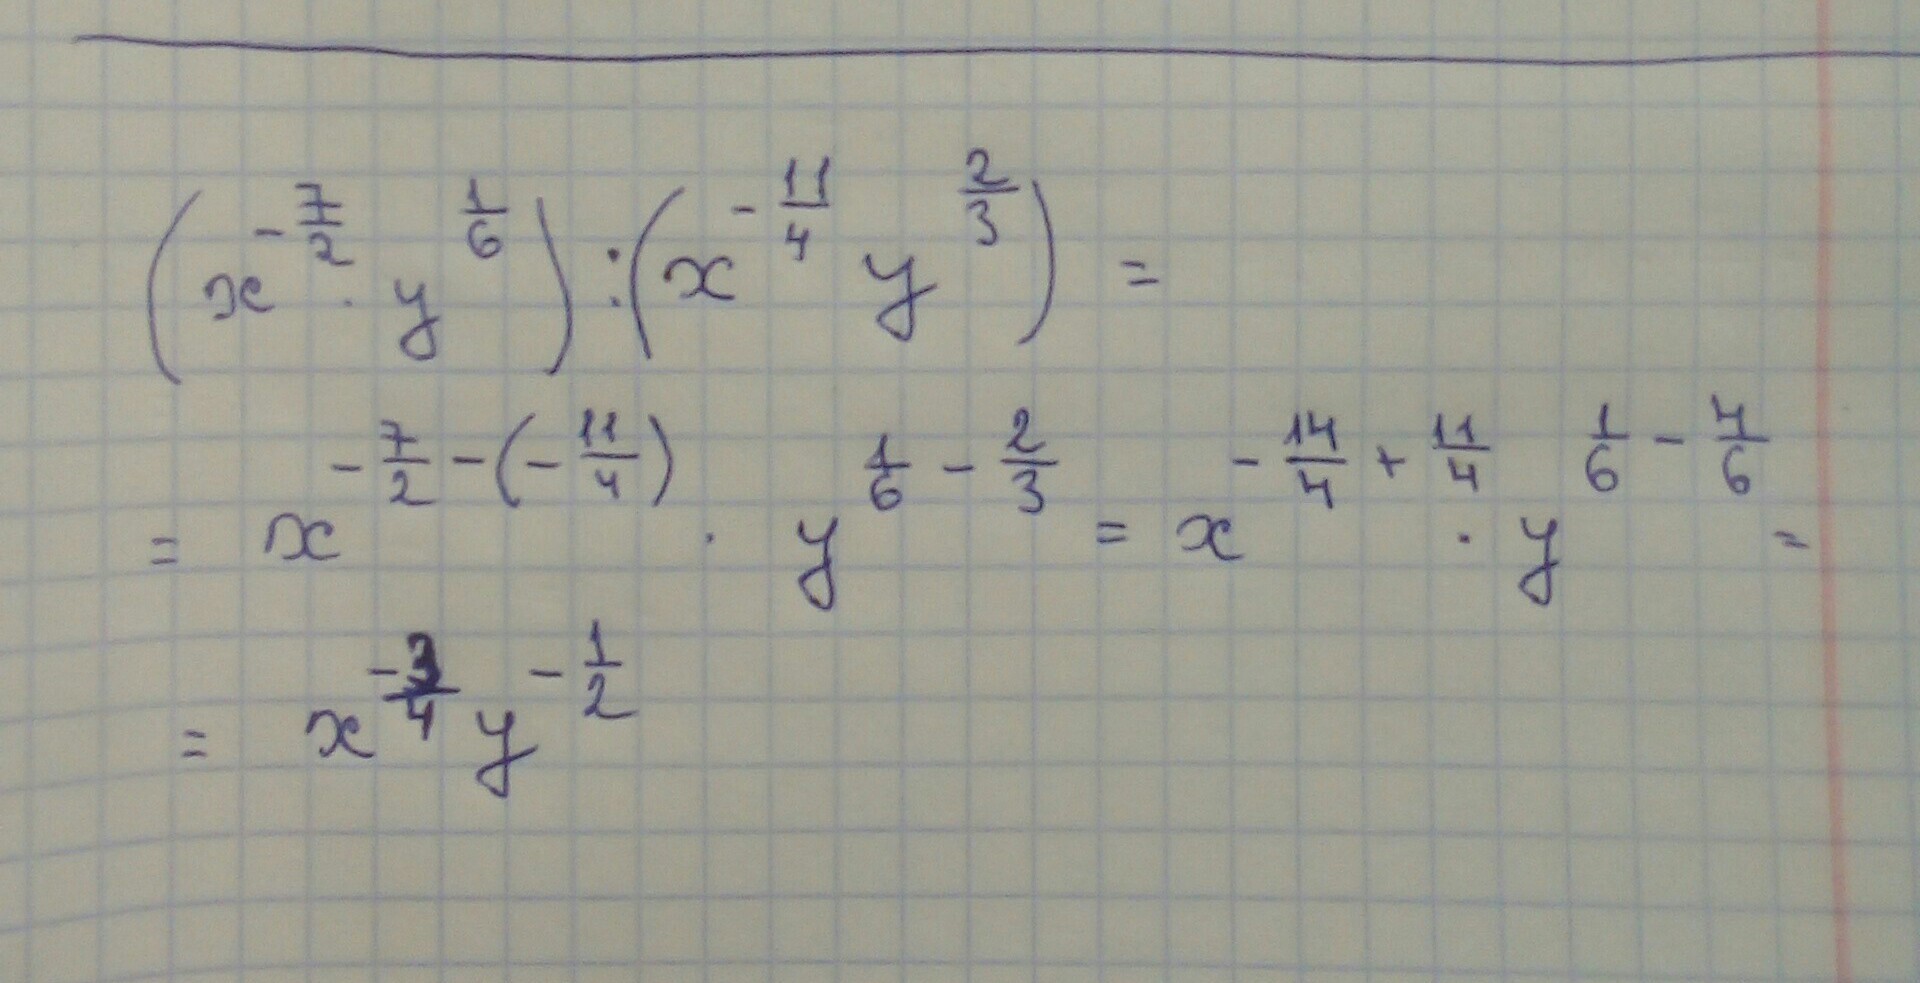 (x^{-\frac{7}{2}} · y^{\frac{1}{6}}) : (x^{-\frac{11}{4}} y^{\frac{2}{3}}) =
= x^{-\frac{7}{2}-(-\frac{11}{4})} · y^{\frac{1}{6}-\frac{2}{3}} = x^{-\frac{14}{4}+\frac{11}{4}} · y^{\frac{1}{6}-\frac{4}{6}} =
= x^{-\frac{3}{4}} y^{-\frac{1}{2}}